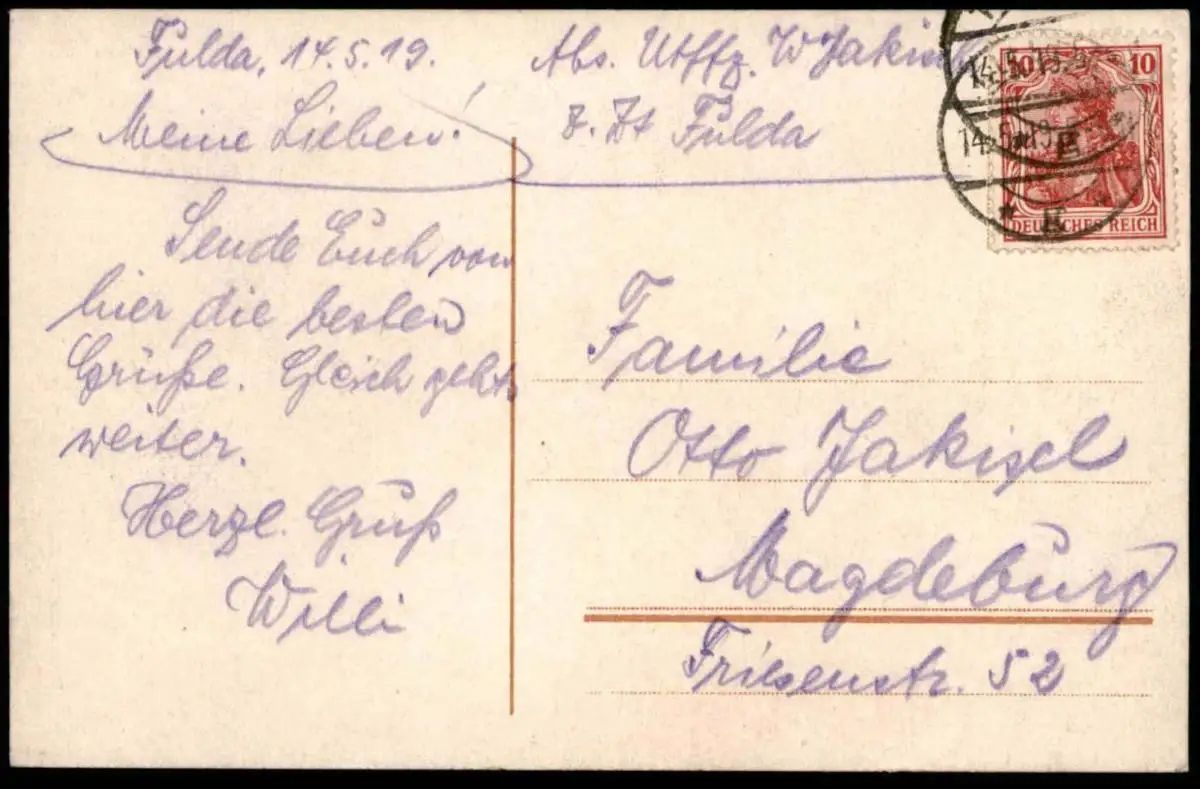 Fulda, 14.5.19.
Meine Lieben!
Sende Euch von
hier die besten
Grüße. Gleich gehts
weiter.
Herzl. Gruß
Willi
Abs. Utffz. W Jakisel
z. Zt Fulda
10 10
DEUTSCHES REICH
14.5.19.5-
14.5.19.
* E
* E
Familie
Otto Jakisel
Magdeburg
Friesenstr. 52